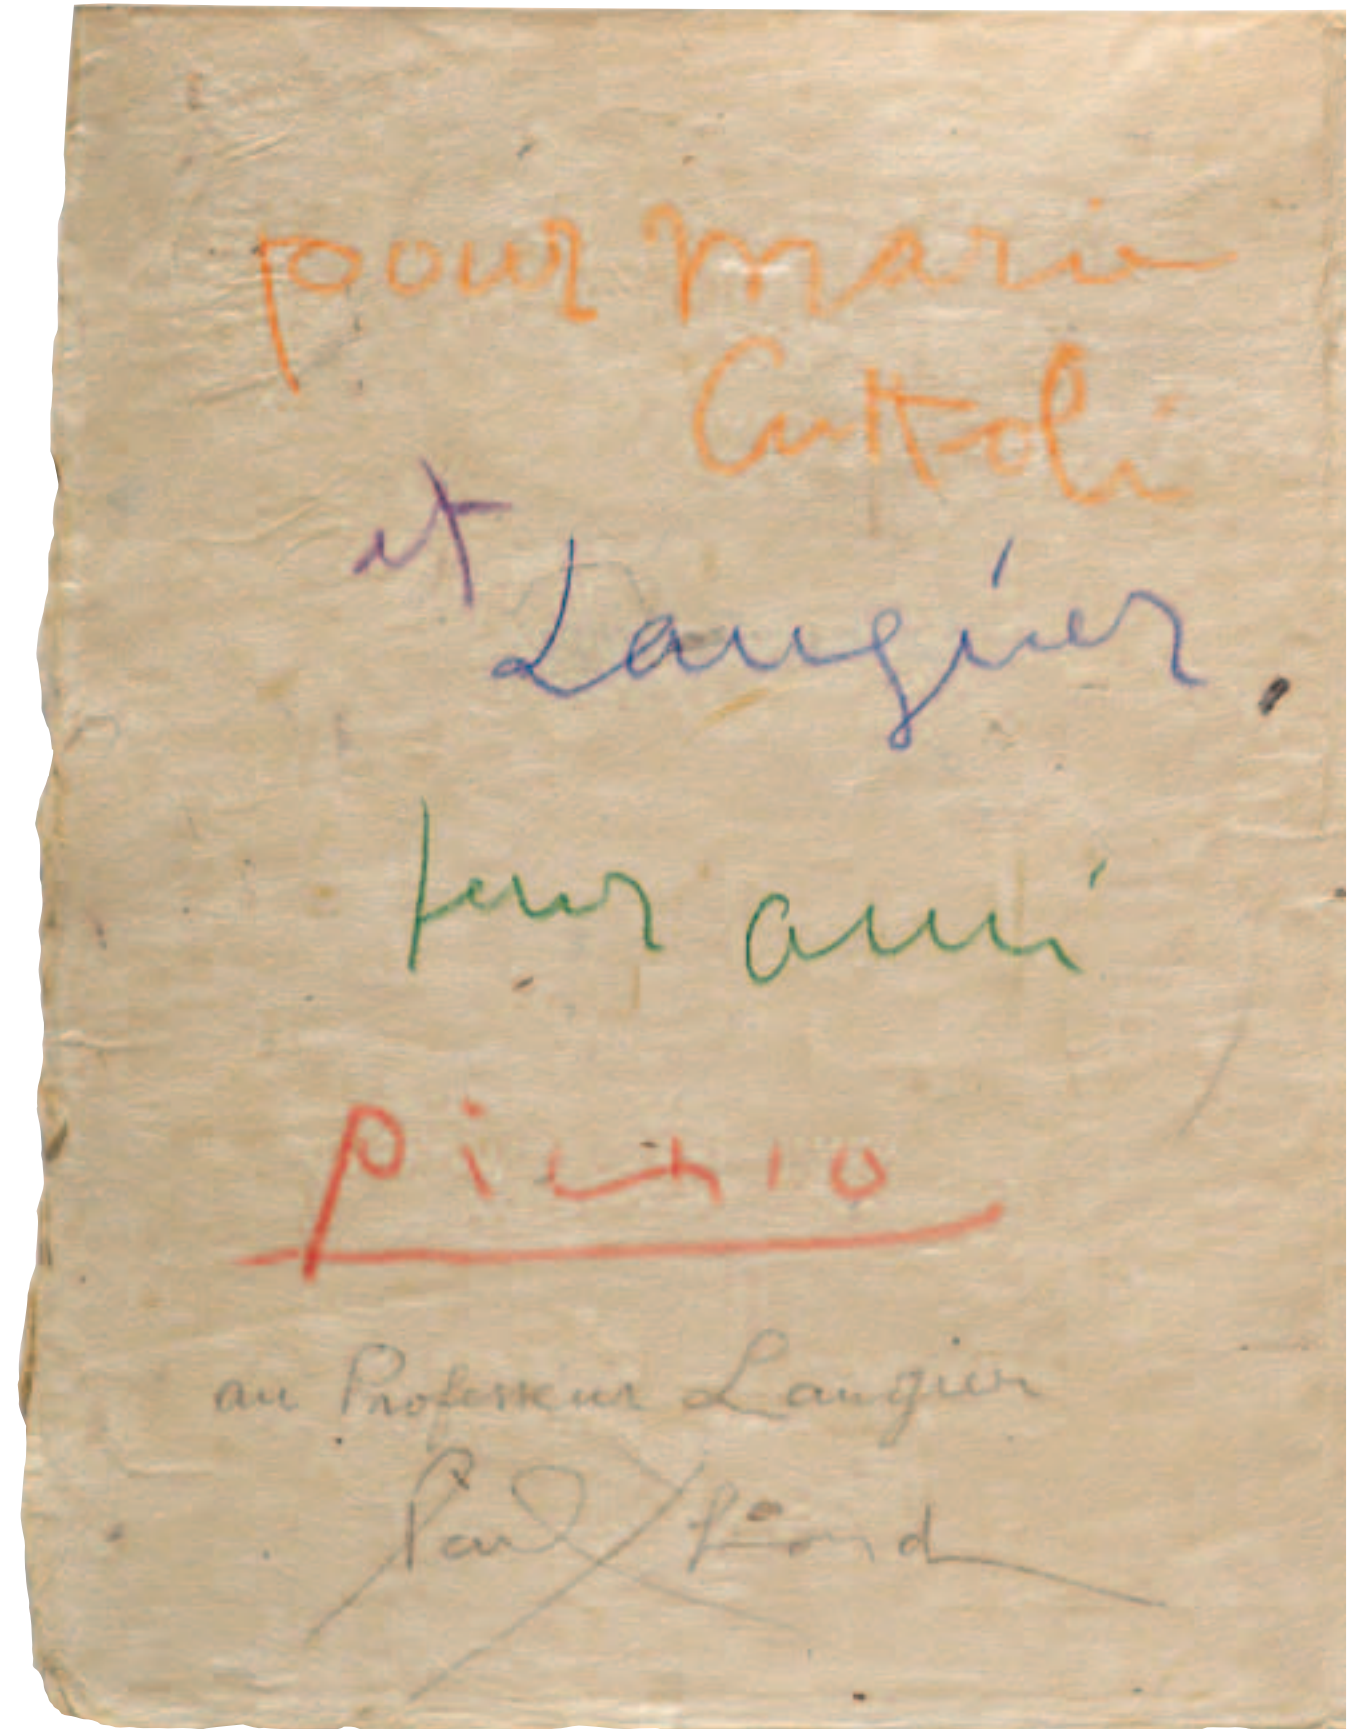 pour Marie
Cuttoli
et
Laugier.
leur ami
Picasso
au Professeur Laugier
Paul